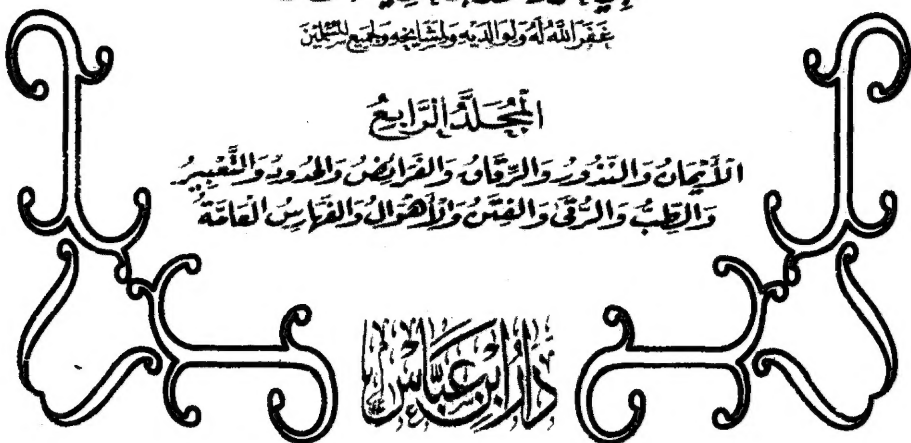 غَفَرَ اللَّهُ لَهُ وَلِوَالِدَيْهِ وَلِمَشَايِخِهِ وَلِجَمِيعِ الْمُسْلِمِينَ
الْمُجَلَّدُ الرَّابِعُ
الْأَيْمَانُ وَالنُّذُورُ وَالرِّقَاقُ وَالْفَرَائِضُ وَالْحُدُودُ وَالتَّعْبِيرُ
وَالطِّبُّ وَالرُّقَى وَالْفِتَنُ وَالْأَهْوَالُ وَالْفَهَارِسُ الْعَامَّةُ
دَارُ ابْنِ عَبَّاسٍ